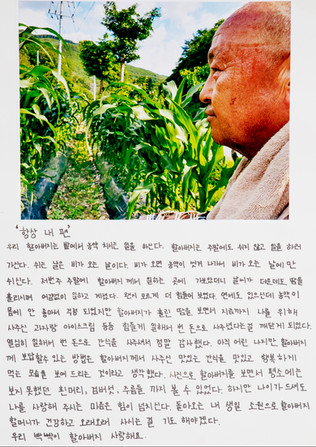 '항상 내 편'
우리 할아버지는 밭에서 농약 치시는 일을 하신다. 할아버지는 주말에도 쉬지 않고 일을 하러
가신다. 쉬는 날은 비가 오는 날이다. 비가 오면 농약이 씻겨 나가서 비가 오는 날에만
쉬신다. 저번주 주말에 할아버지께서 일하는 곳에 가보았더니 날씨가 더운데도 땀을
흘리시며 열심히 일하고 계셨다. 보기 더 힘들어 보였다. 연세도 있으신데 농약이
몸에 안 좋아서 걱정 되었지만 할아버지가 흘린 땀을 보면서 지금까지 나를 위해
사주신 고기랑 아이스크림 등등 힘들게 일해서 번 돈으로 사주셨다는 걸 깨닫게 되었다.
열심히 일해서 번 돈으로 간식을 사주셔서 정말 감사했다. 아직 어린 나지만 할아버지
께 보답할 수 있는 방법은 할아버지께서 사주신 맛있는 간식을 맛있고 행복하게
먹는 모습을 보여 드리는 것이라고 생각했다. 사진으로 할아버지를 보면서 평소에는
보지 못했던 흰머리, 검버섯, 주름을 까지 볼 수 있었다. 하지만 나이가 드셔도
나를 사랑해 주시는 마음은 힘이 넘치신다. 돌아오는 내 생일 소원으로 할아버지
할머니가 건강하고 오래오래 사시는 걸 기도 해야겠다.
우리 할아버지 사랑해요.